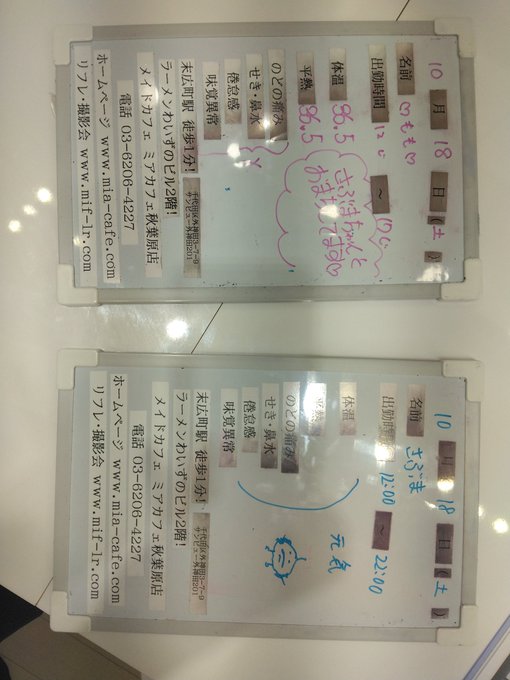 10月18日(土)
名前 ♡もも♡
出勤時間 12:00 ~
体温 36.5
平熱 36.5
さぶまちゃんと
おまちしてます♡
のどの痛み
せき・鼻水
倦怠感
味覚異常
末広町駅 徒歩1分!
千代田区外神田3-7-9
サンビュー外神田201
ラーメンわいずのビル2階!
メイドカフェ ミアカフェ秋葉原店
電話 03-6206-4227
ホームページ www.mia-cafe.com
リフレ・撮影会 www.mif-lr.com
10月18日(土)
名前 さぶま
出勤時間 12:00 ~ 22:00
体温
平熱
元気
のどの痛み
せき・鼻水
倦怠感
味覚異常
末広町駅 徒歩1分!
千代田区外神田3-7-9
サンビュー外神田201
ラーメンわいずのビル2階!
メイドカフェ ミアカフェ秋葉原店
電話 03-6206-4227
ホームページ www.mia-cafe.com
リフレ・撮影会 www.mif-lr.com